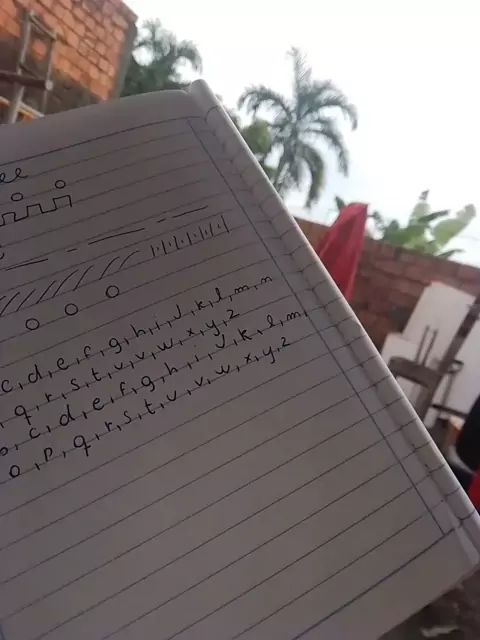 c, d, e, f, g, h, i, J, k, l, m, n
q, r, s, t, u, v, w, x, y, z
c, d, e, f, g, h, i, J, k, l, m,
o, p, q, r, s, t, u, v, w, x, y, z